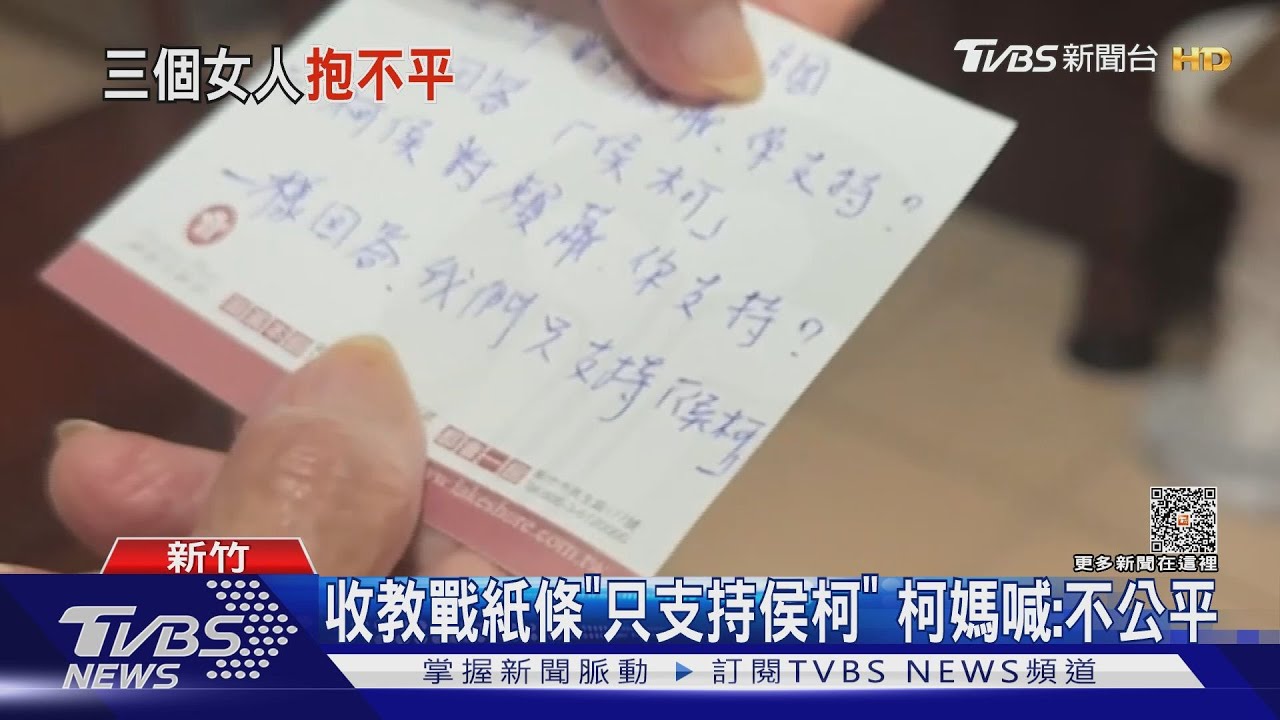 三個女人抱不平
TVBS新聞台 HD
個
回答「侯柯」
支持?
柯侯對賴蕭、你支持?
一樣回答、我們只支持「侯柯」
www.lakeshore.com.tw
更多新聞在這裡
新竹
收教戰紙條"只支持侯柯" 柯媽喊:不公平
TVBS NEWS
掌握新聞脈動 ▶ 訂閱TVBS NEWS頻道